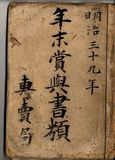 明治三十九年
年末賞與書類
專賣局